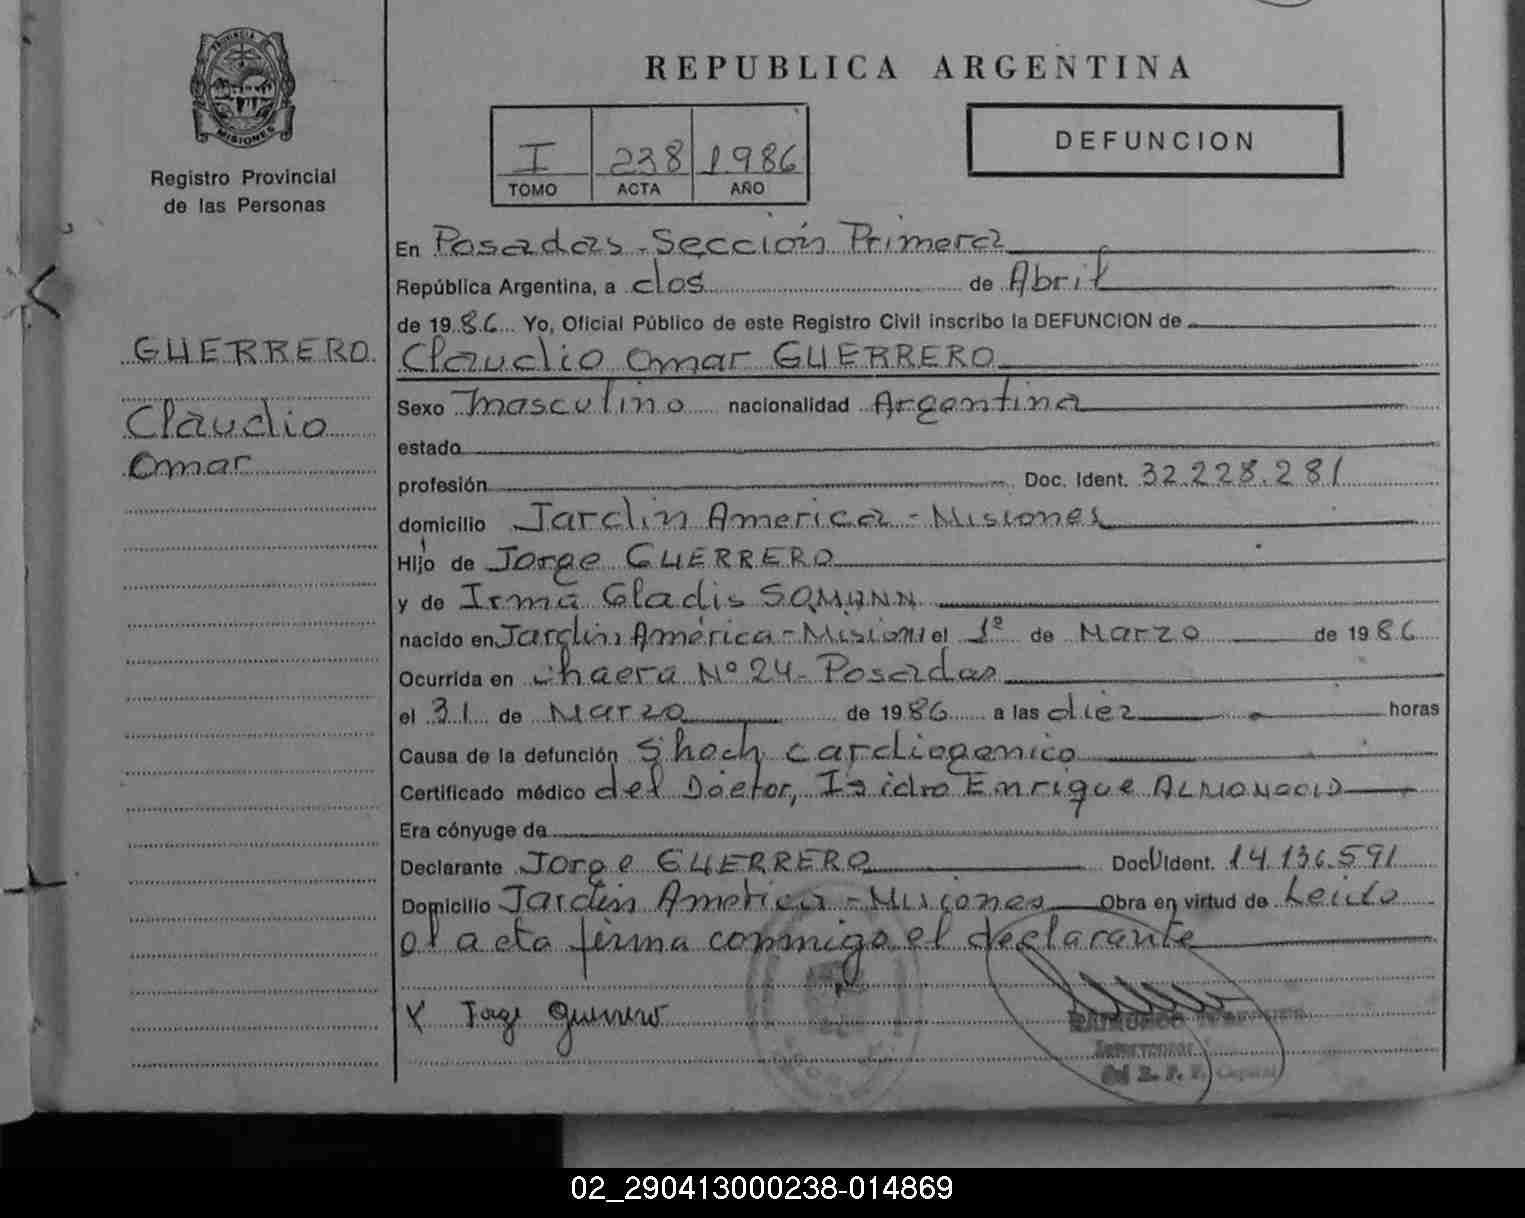 PROVINCIA
MISIONES
Registro Provincial
de las Personas
GUERRERO
Claudio
Omar
REPUBLICA ARGENTINA
I 238 1986
TOMO ACTA AÑO
DEFUNCION
En Posadas - Sección Primera
República Argentina, a dos de Abril
de 1986 Yo, Oficial Público de este Registro Civil inscribo la DEFUNCION de
Claudio Omar GUERRERO
Sexo Masculino nacionalidad Argentina
estado
profesión Doc. Ident. 32.228.281
domicilio Jardin America - Misiones
Hijo de Jorge GUERRERO
y de Irma Gladis
nacido en Jardin América - Misiones el 1º de Marzo de 1986
Ocurrida en chacra Nº 24 - Posadas
el 31 de Marzo de 1986 a las diez horas
Causa de la defunción Shock cardiogenico
Certificado médico del Doctor, Isidro Enrique ALMONACID
Era cónyuge de
Declarante Jorge GUERRERO Doc. Ident. 14.136.591
Domicilio Jardin America - Misiones Obra en virtud de Leido
el acta firma conmigo el declarante
X Jorge Guerrero
RAIMUNDO
Interventor
del R. P. P. Capital
02_290413000238-014869